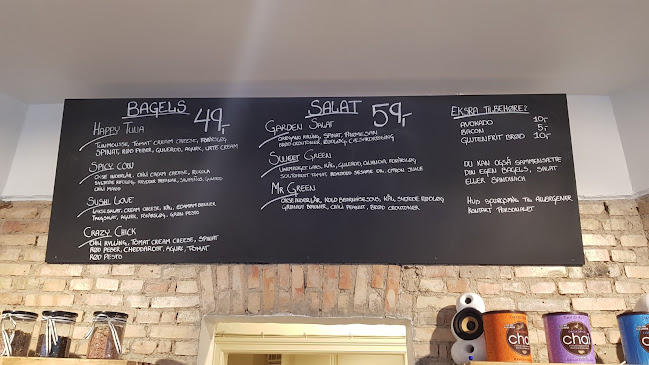 BAGELS 49,-
HAPPY TUNA
TUNMOUSSE, TOMAT CREAM CHEESE, FORÅRSLØG
SPINAT, RØD PEBER, GULEROD, AGURK, CREAM
SPICY COW
OKSE INDERLÅR, CHILI CREAM CHEESE, RUCOLA
RØDLØG, GULEROD
CHILI MAYO
SUSHI LOVE
CREAM CHEESE, KÅL, EDAMAME BØNNER
AGURK, FORÅRSLØG, GRØN PESTO
CRAZY CHICK
CHILI KYLLING, TOMAT CREAM CHEESE, SPINAT
RØD PEBER, CHEDDAROST, AGURK, TOMAT
RØD PESTO
SALAT 59,-
GARDEN SALAT
OREGANO KYLLING, SPINAT, PARMESAN
BRØD CROUTONER, RØDLØG, CAESARDRESSING
SWEET GREEN
LAKS, KÅL, GULEROD, QUINOA, FORÅRSLØG
SOLTØRRET TOMAT, ROASTED SESAME OIL, CITRON JUICE
MR GREEN
OKSE INDERLÅR, KOLD BEARNAISESOVS, KÅL, SYLTEDE RØDLØG
GRØNNE BØNNER, CHILI PEANUT, BRØD CROUTONER
EKSRA TILBEHØRE?
AVOKADO 10,-
BACON 5,-
GLUTENFRIT BRØD 10,-
DU KAN OGSÅ SAMMENSÆTTE
DIN EGEN BAGELS, SALAT
ELLER SANDWICH
HVIS SPØRGSMÅL TIL ALLERGENER
KONTAKT PERSONALET
chai
chai
chai